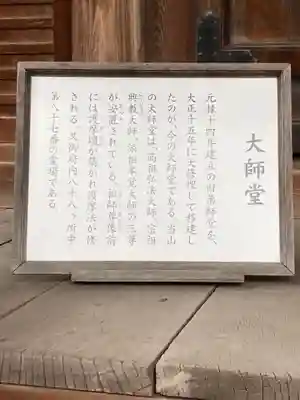 大師堂
元禄十四年建立の旧薬師堂を、
大正十五年に大修理して移建し
たのが、今の大師堂である。当山
の大師堂は、高祖弘法大師、宗祖
興教大師、派祖専誉大師の三尊
が安置されている。祖師尊像前
には護摩壇が築かれ護摩法が修
される。又御府内八十八ヶ所中
第八十七番の霊場である。